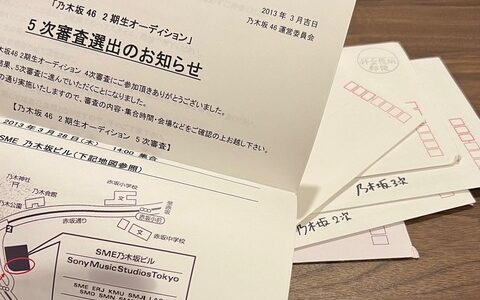 2013年 3月吉日
「乃木坂46 2期生オーディション」
乃木坂46 運営委員会
5次審査選出のお知らせ
坂46 2期生オーディション 4次審査にご参加頂きありがとうございました。
結果、5次審査に進んでいただくことになりました。
の通り実施いたしますので、審査の内容・集合時間・会場などをご確認の上お越し下さい。
【乃木坂46 2期生オーディション 5次審査】
2013年3月28日(木) 14:00 集合
SME 乃木坂ビル(下記地図参照)
乃木神社
乃木会館
赤坂小学校
文
乃木公園
赤坂通り
赤坂小前
文
赤坂中学校
SME乃木坂ビル
Sony Music Studios Tokyo
SME ERJ KMU SMJI
乃木坂3次
乃木坂2次